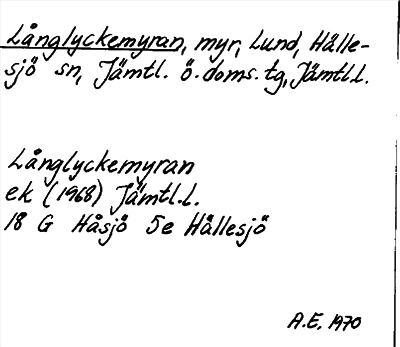 Långlyckemyran, myr, Lund, Hälle-
sjö sn, Jämtl. ö. doms. tg, Jämtl.l.
Långlyckemyran
ek (1968) Jämtl.l.
18 G Håsjö 5e Hällesjö
A.E. 1970